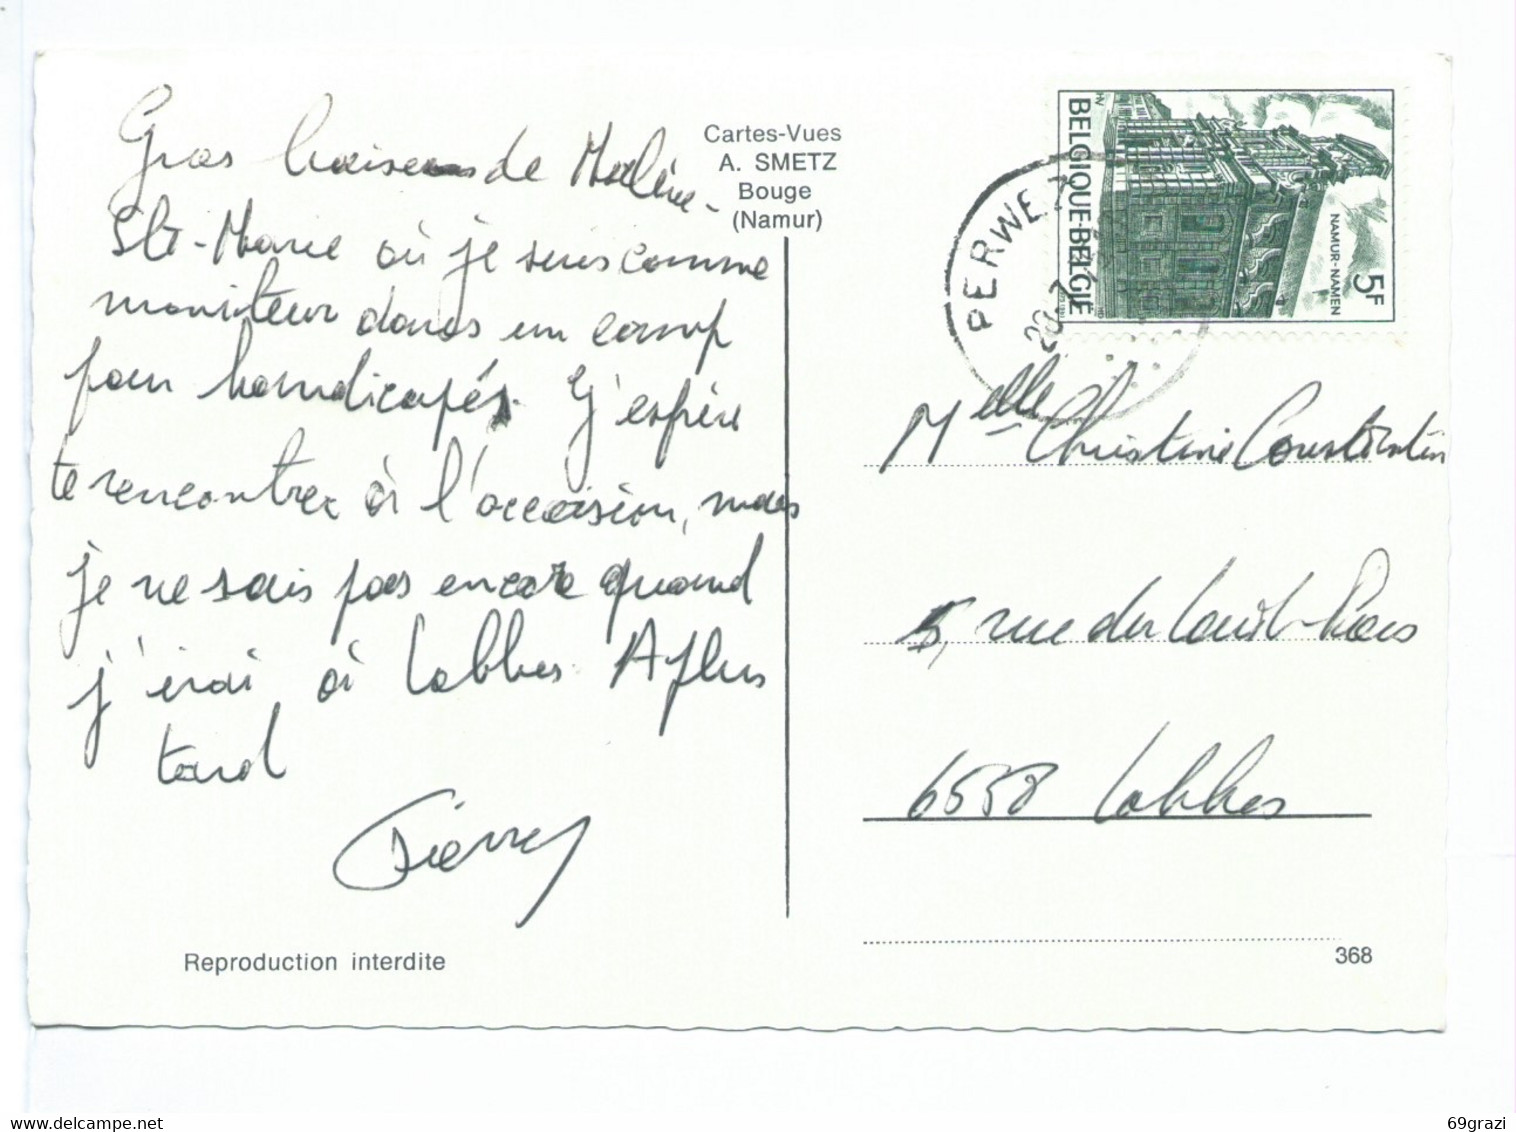 Gros baisers de Malène-
Ste-Marie où je suis comme
moniteur dans un camp
pour handicapés. J'espère
te rencontrer à l'occasion, mais
je ne sais pas encore quand
j'irai à Lobbes. A plus
tard
Pierre
Reproduction interdite
Cartes-Vues
A. SMETZ
Bouge
(Namur)
BELGIQUE-BELGIË
NAMUR-NAMEN
5F
PERWEZ
Melle Christine Constantin
5, rue du
6558 Lobbes
368
69grazi